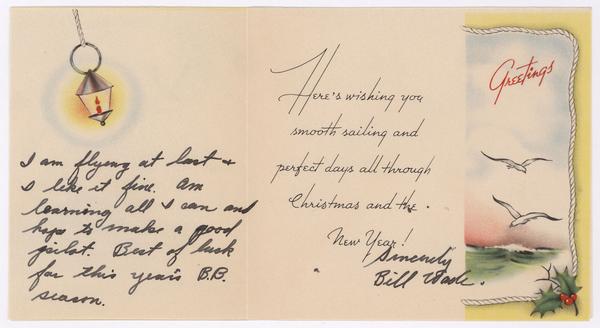 I am flying at last +
I like it fine. Am
learning all I can and
hope to make a good
pilot. Best of luck
for this year's B.B.
season.
Here's wishing you
smooth sailing and
perfect days all through
Christmas and the
New Year!
Sincerely
Bill Wade.
Greetings